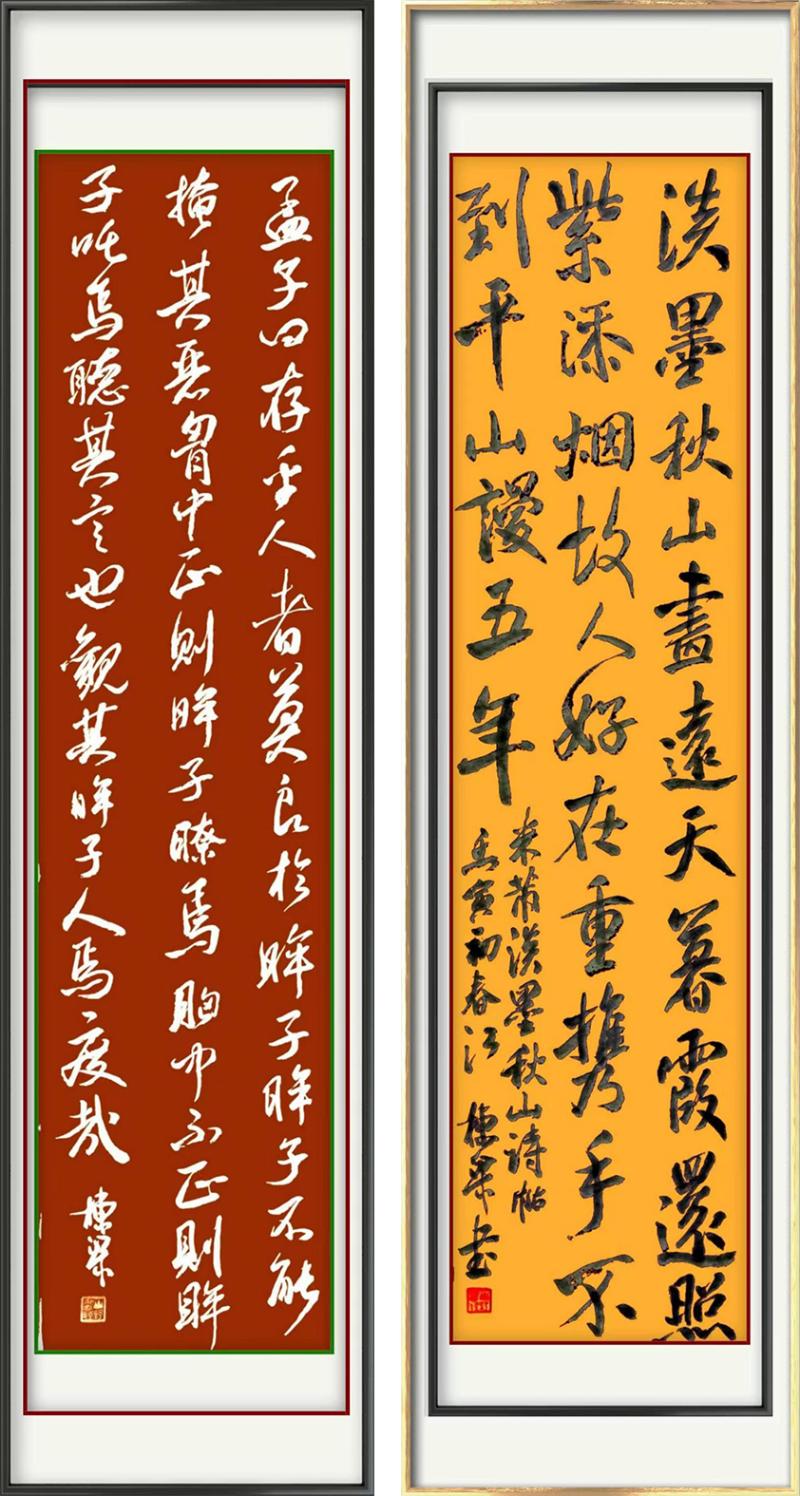 淡墨秋山畫遠天暮霞還照
紫添烟故人好在重携手不
到平山謾五年
米芾淡墨秋山诗帖
壬寅初春江 棟梁书
孟子曰存乎人者莫良於眸子眸子不能
掩其惡胷中正則眸子瞭焉胸中不正則眸
子眊焉聽其言也觀其眸子人焉廋哉
棟梁